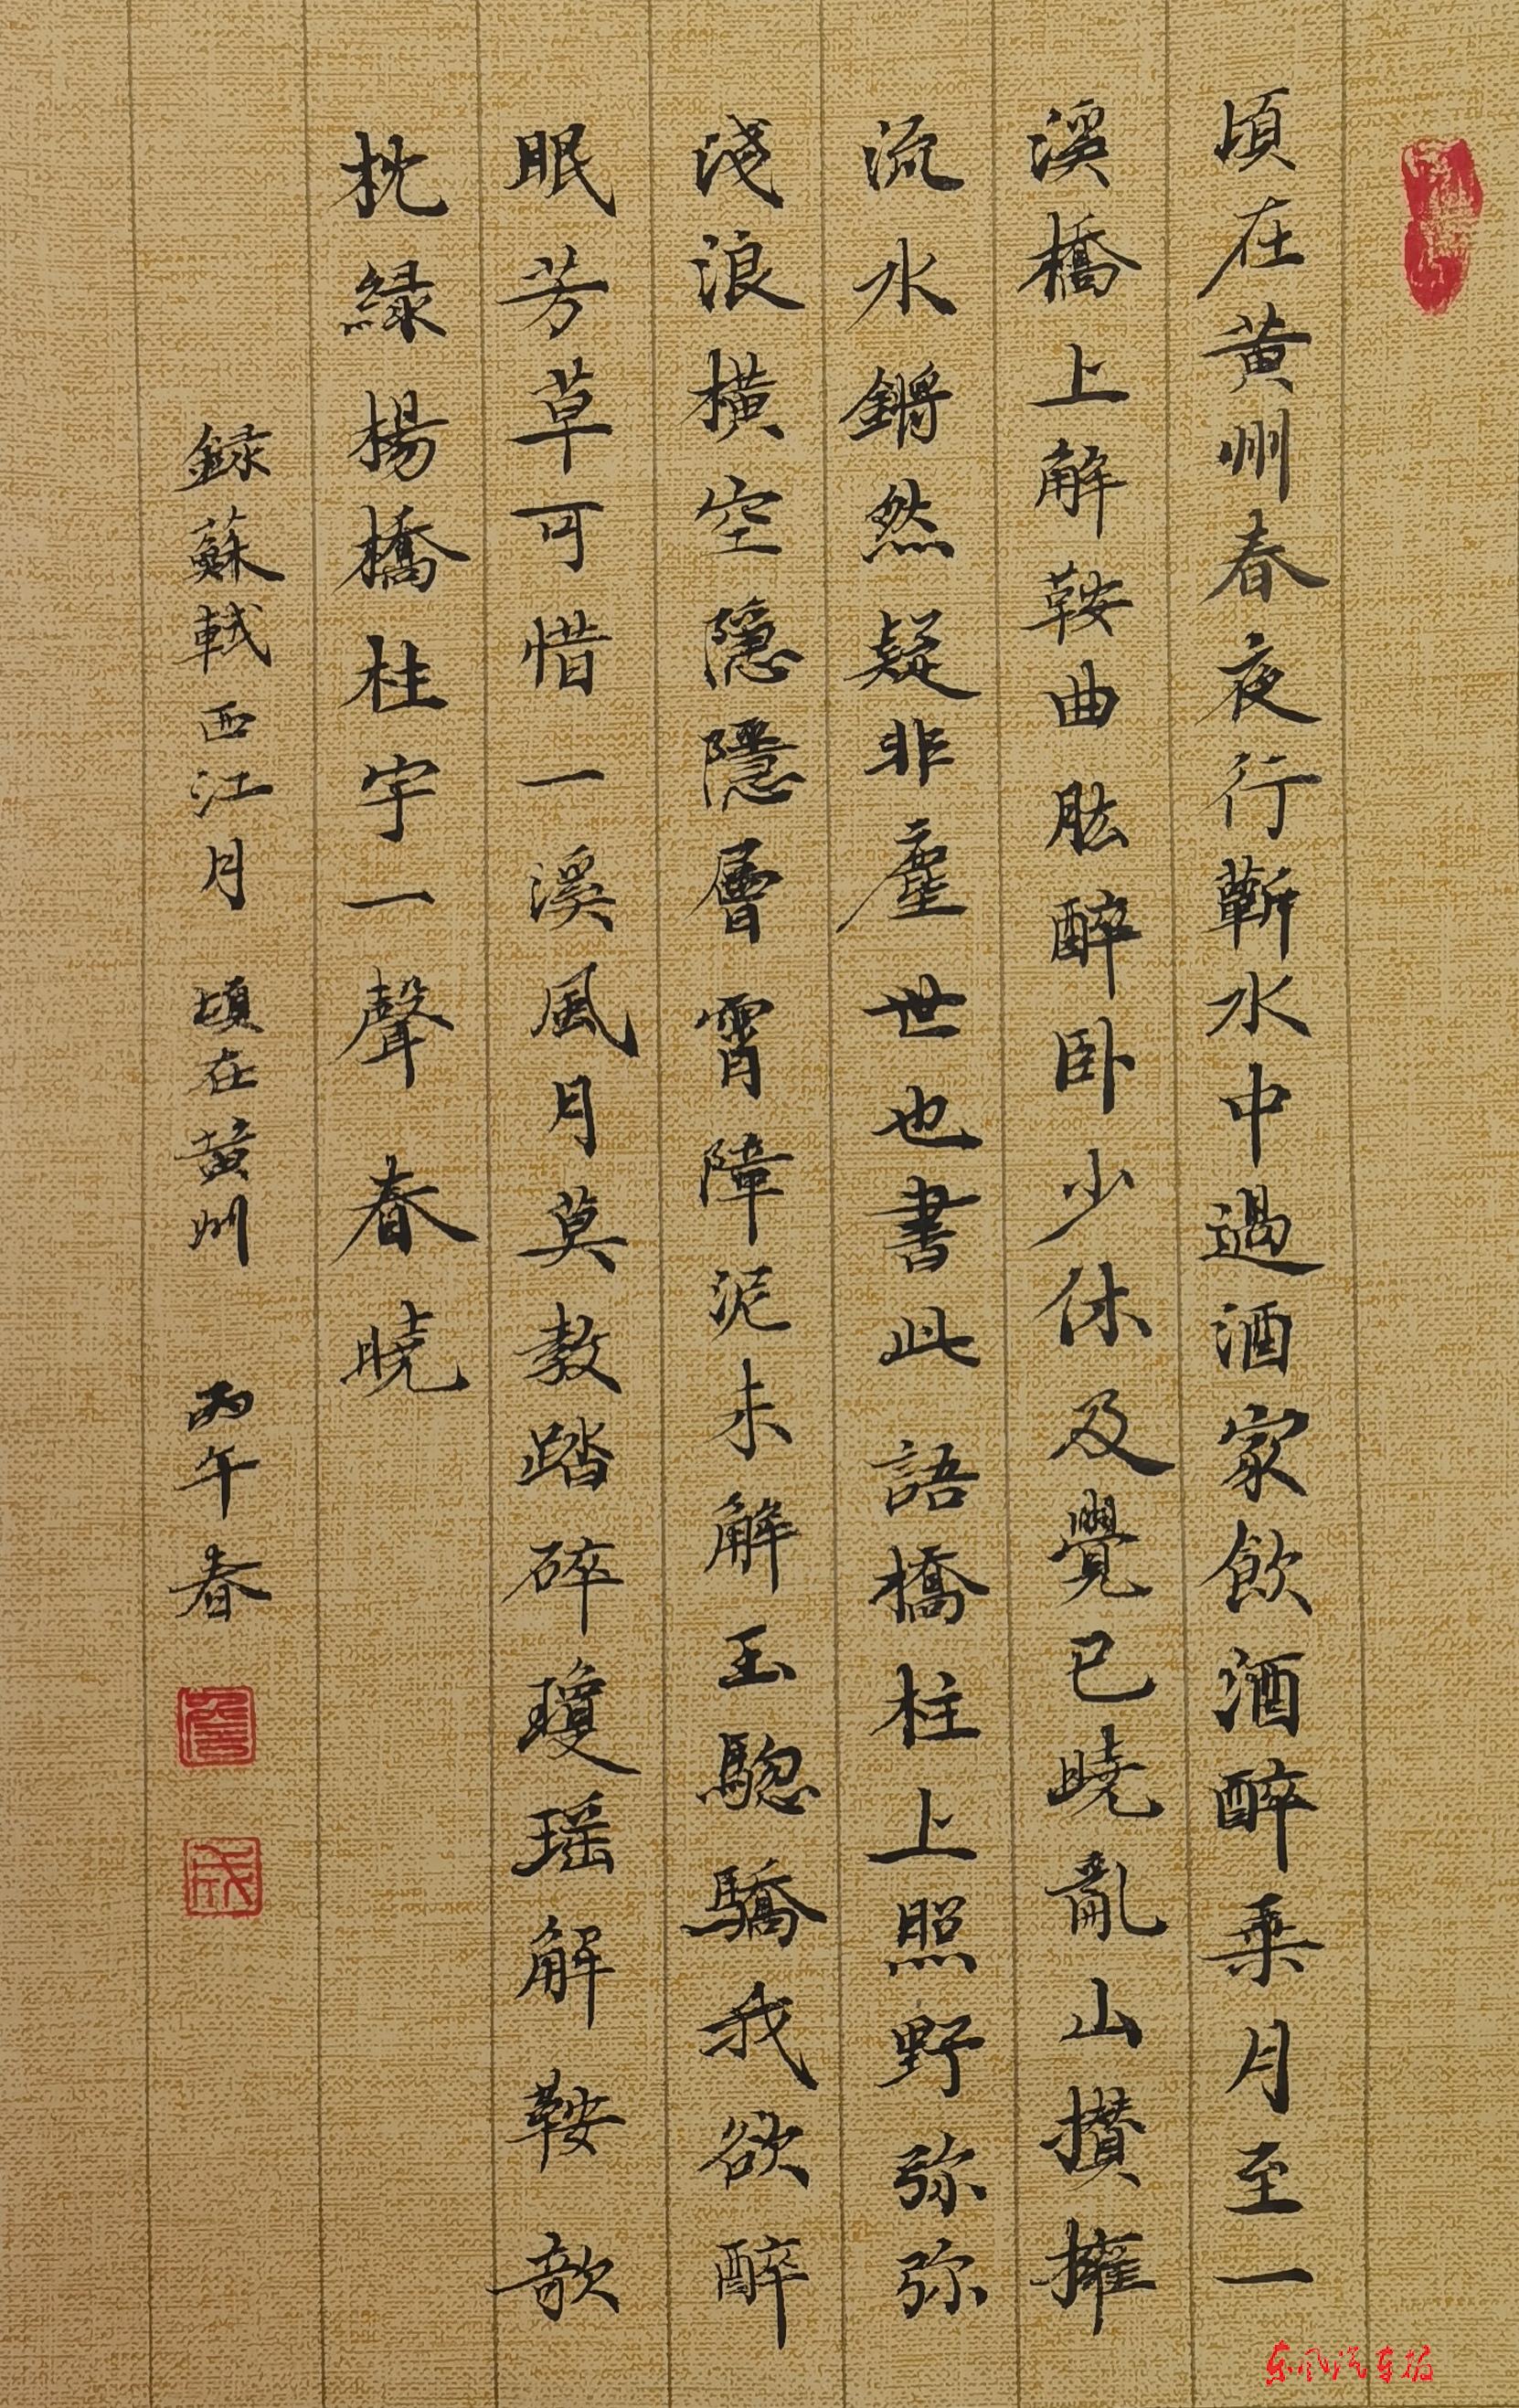 頃在黄州春夜行蘄水中過酒家飲酒醉乘月至一
溪橋上解鞍曲肱醉卧少休及覺已曉亂山攢擁
流水鏘然疑非塵世也書此語橋柱上照野弥弥
淺浪橫空隱隱層霄障泥未解玉驄驕我欲醉
眠芳草可惜一溪風月莫教踏碎瓊瑶解鞍欹
枕緑楊橋杜宇一聲春曉
録蘇軾西江月 頃在黄州 丙午春
东风汽车报